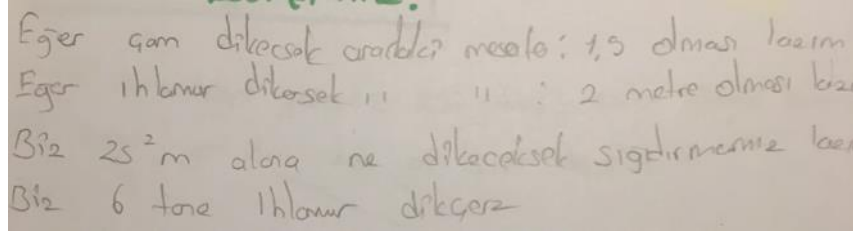 Eğer çam dikecsek aradaki mesafe : 1,5 olması lazım
Eğer ıhlamur dikersek ,, ,, : 2 metre olması laz
Biz 25 ²m alana ne dikeceksek sığdırmamız laz
Biz 6 tane ıhlamur dikçerz